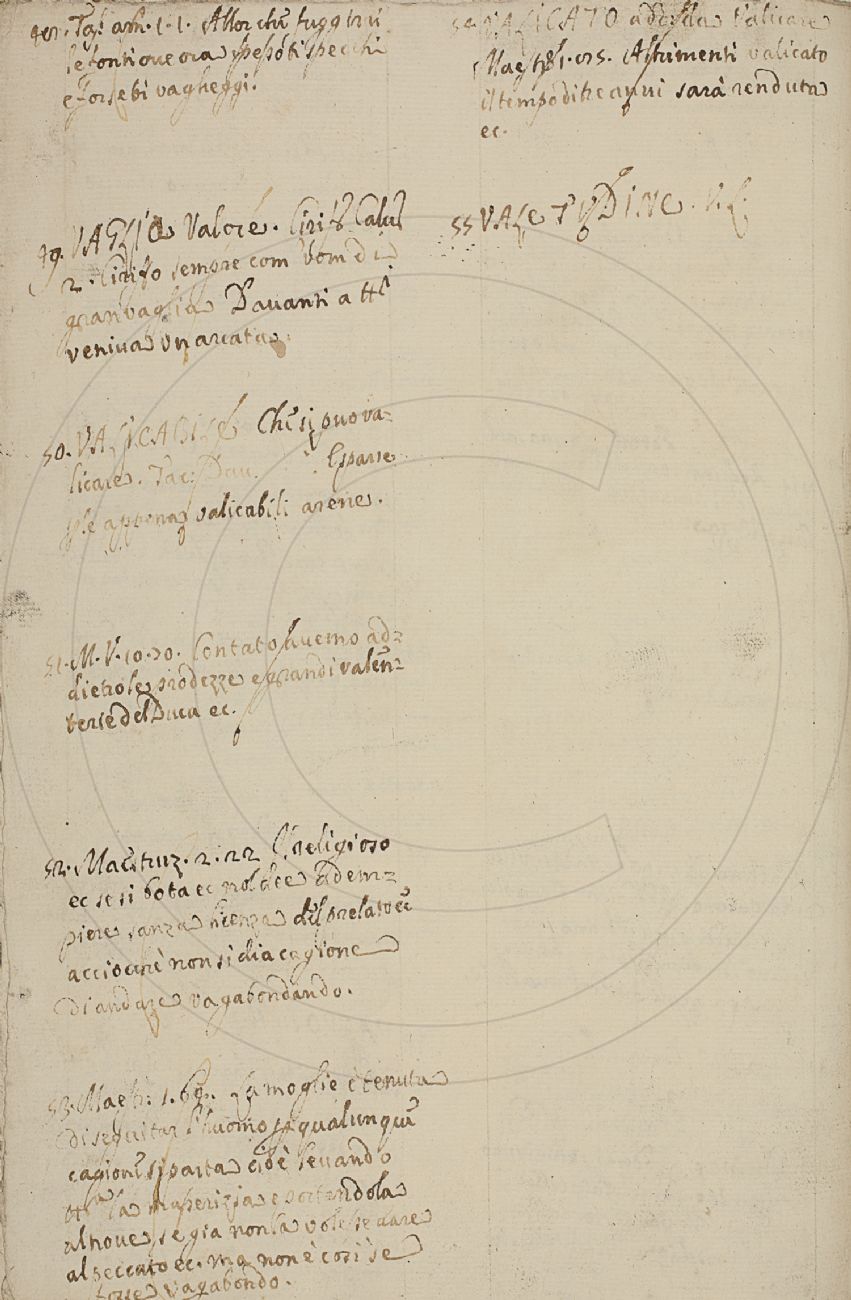 48. Tass. am. 1. 1. Allor chè fuggirai
le fonti ove ora spesso ti specchi
e forse ti vagheggi.
49. VAGLIA Valore. Cirif. Calv.
2. Cirifo sempre com' uom di
gran vaglia Davanti a tti
veniva un arcata.
50. VALICABILE Che si può va-
licare. Tac: Dav. Esparse
appena valicabili arene.
51. M. V. 10. 70. Contato avemo ad-
dietro le prodezze e grandi valen-
terie del Duca ec.
52. Maestruz. 2. 22 Il religioso
ec se si bota ec nol dee adem-
piere sanza licenza del prelato ec
acciocchè non si dia cagione
di andare vagabondando.
53. Maestr: 1. 69. La moglie è tenuta
di seguitar l'huomo per qualunque
cagione si parta cioè levando
la masserizia e portandola
altrove se già non la volesse dare
al peccato ec. ma non è così se
fosse vagabondo.
54. VALICATO add. da Valicare
Maestr. 1. 75. Altrimenti valicato
il tempo di tre anni sarà renduta
ec.
55 VALETUDINE. V. L.